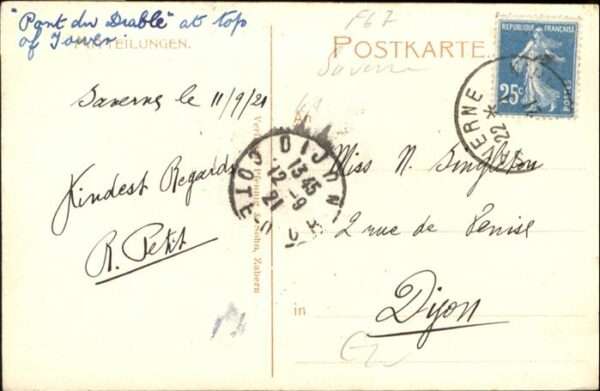 "Pont du Diable" at top
of Tower.
MITTEILUNGEN.
POSTKARTE
F67
Saverne
REPUBLIQUE FRANÇAISE
25c
POSTES
VERNE
22
Saverne le 11/9/21
An
Kindest Regards
R. Petit
DIJON
13 45
12 -9
21
COTE-D'OR
Miss N. Singleton
2 rue de Venise
in
Dijon
Sohn, Zabern